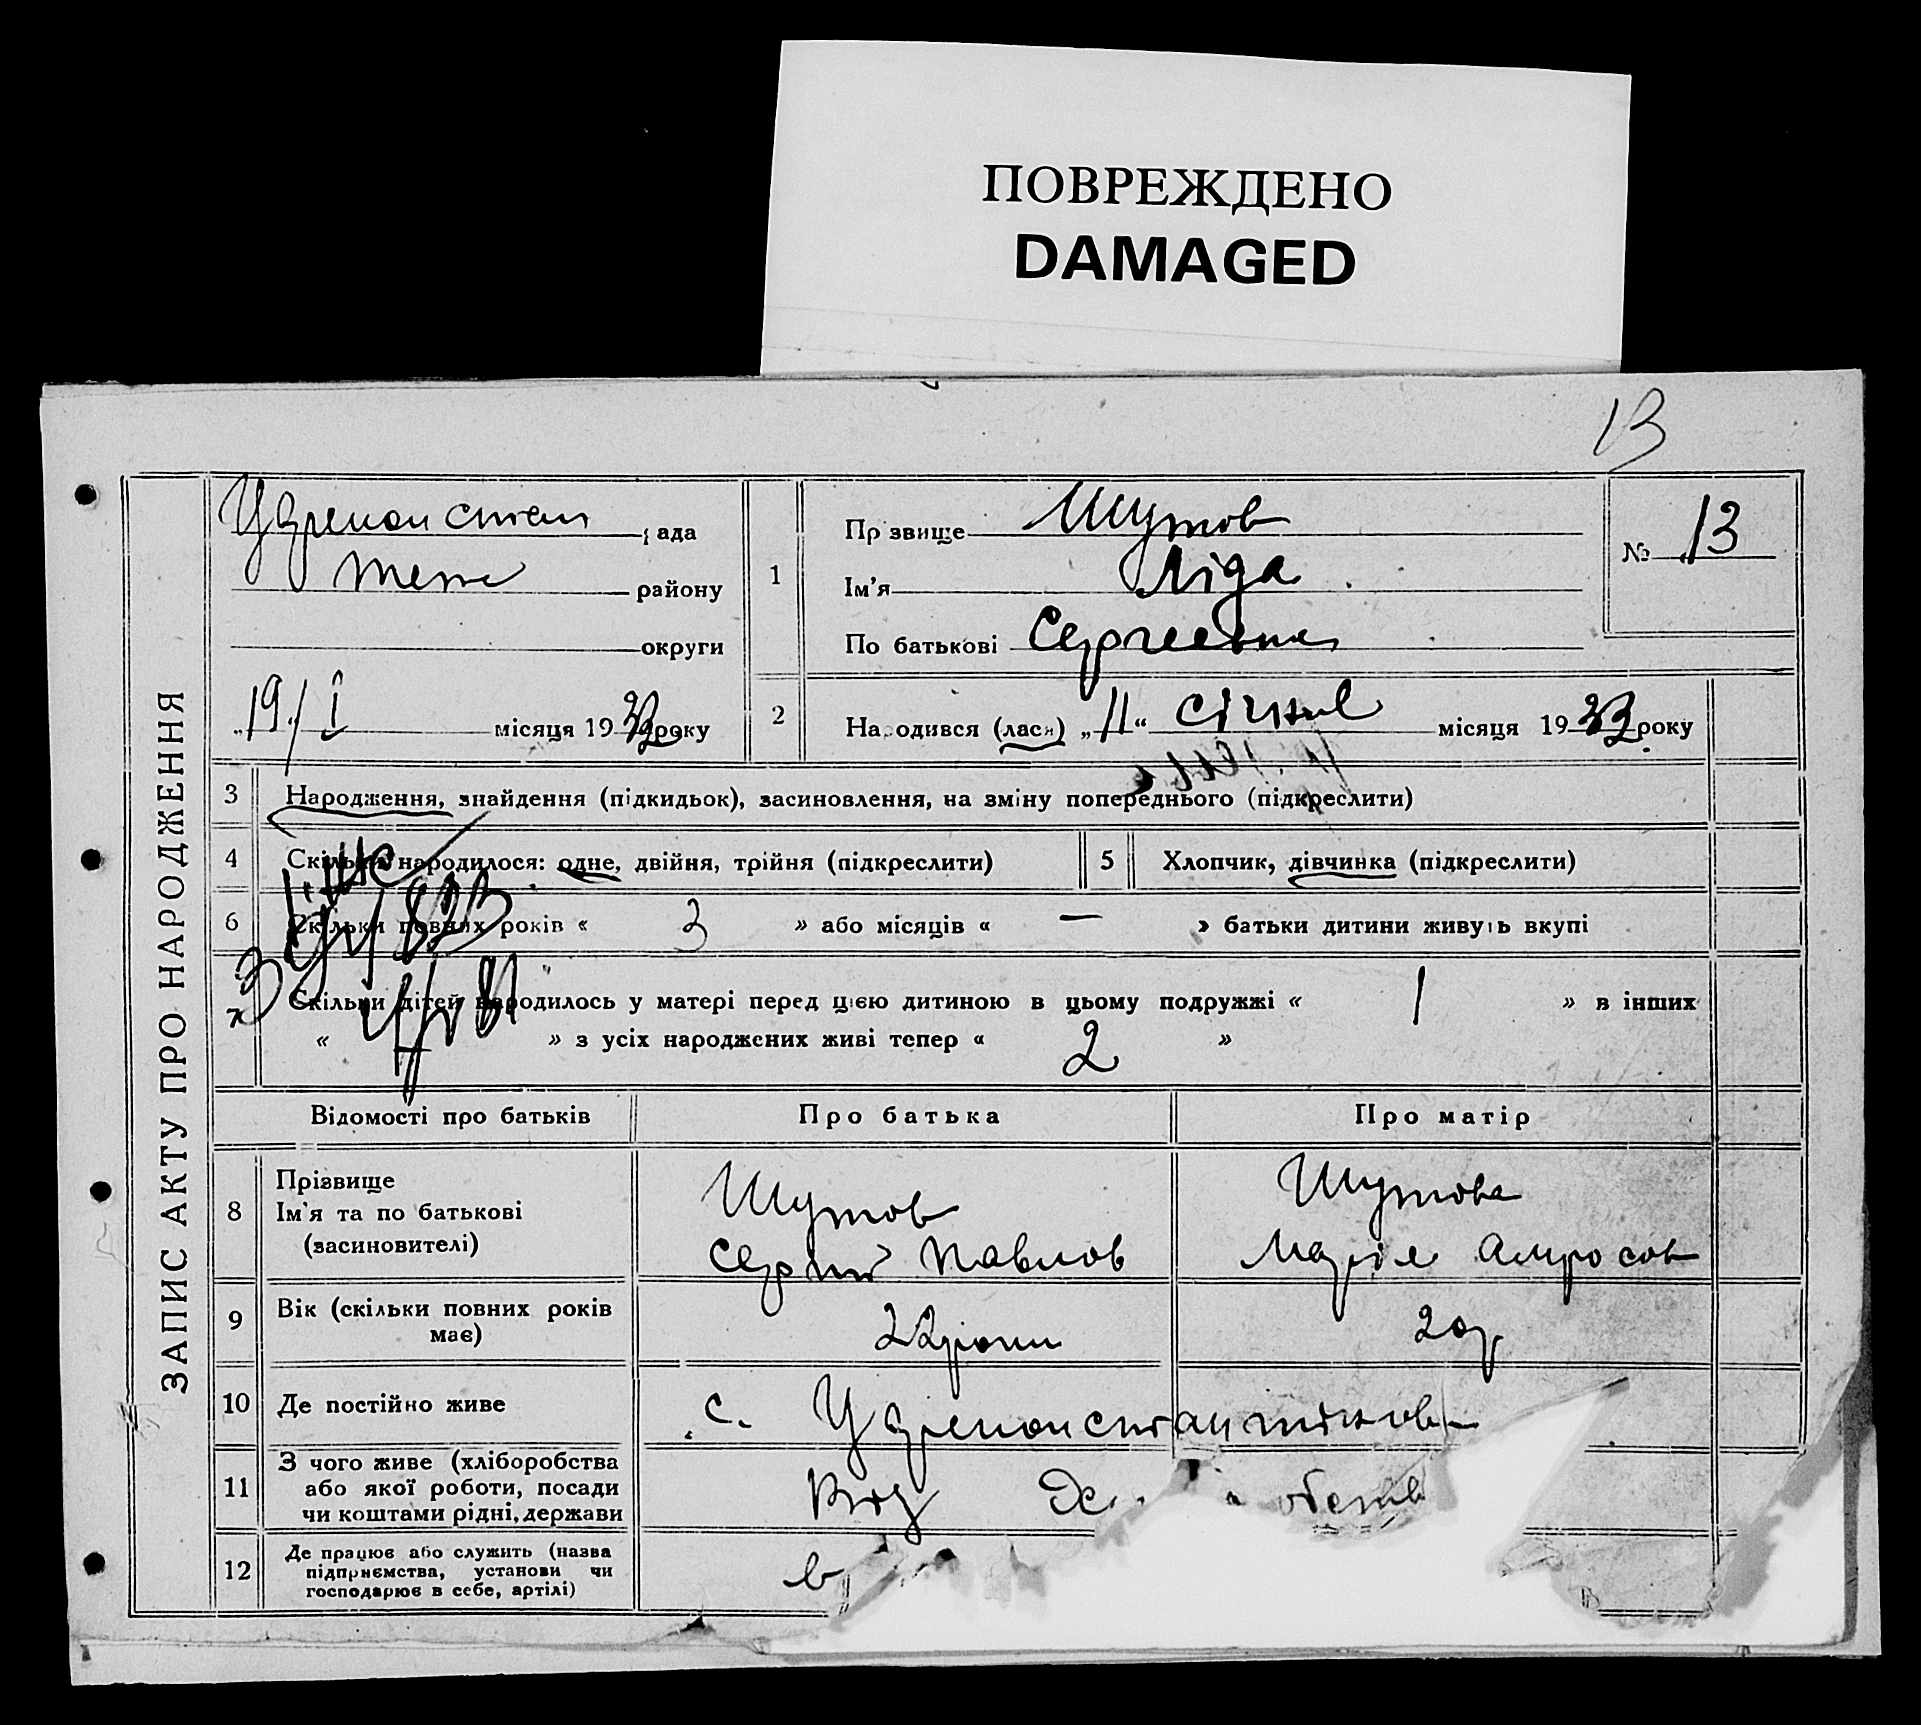 ПОВРЕЖДЕНО
DAMAGED
13
ЗАПИС АКТУ ПРО НАРОДЖЕННЯ
рада
району
округи
"19/I місяця 1933 року
1
Прізвище Шутов
Ім'я Ліда
По батькові Сергеевна
№ 13
2
Народився (лася) „11“ січня місяця 1933 року
3
Народження, знайдення (підкидьок), засиновлення, на зміну попереднього (підкреслити)
4
Скільки народилося: одне, двійня, трійня (підкреслити)
5
Хлопчик, дівчинка (підкреслити)
6
Скільки повних років « 3 » або місяців « — » батьки дитини живуть вкупі
7
Скільки дітей народилось у матері перед цією дитиною в цьому подружжі « 1 » в інших
« » з усіх народжених живі тепер « 2 »
Відомості про батьків
Про батька
Про матір
8
Прізвище
Ім'я та по батькові
(засиновителі)
Шутов
Сергий Павлов
Шутова
Марія Амросов
9
Вік (скільки повних років
має)
22 роки
20 р
10
Де постійно живе
с.
11
З чого живе (хліборобства
або якої роботи, посади
чи коштами рідні, держави
12
Де працює або служить (назва
підприємства, установи чи
господарює в себе, артілі)
в